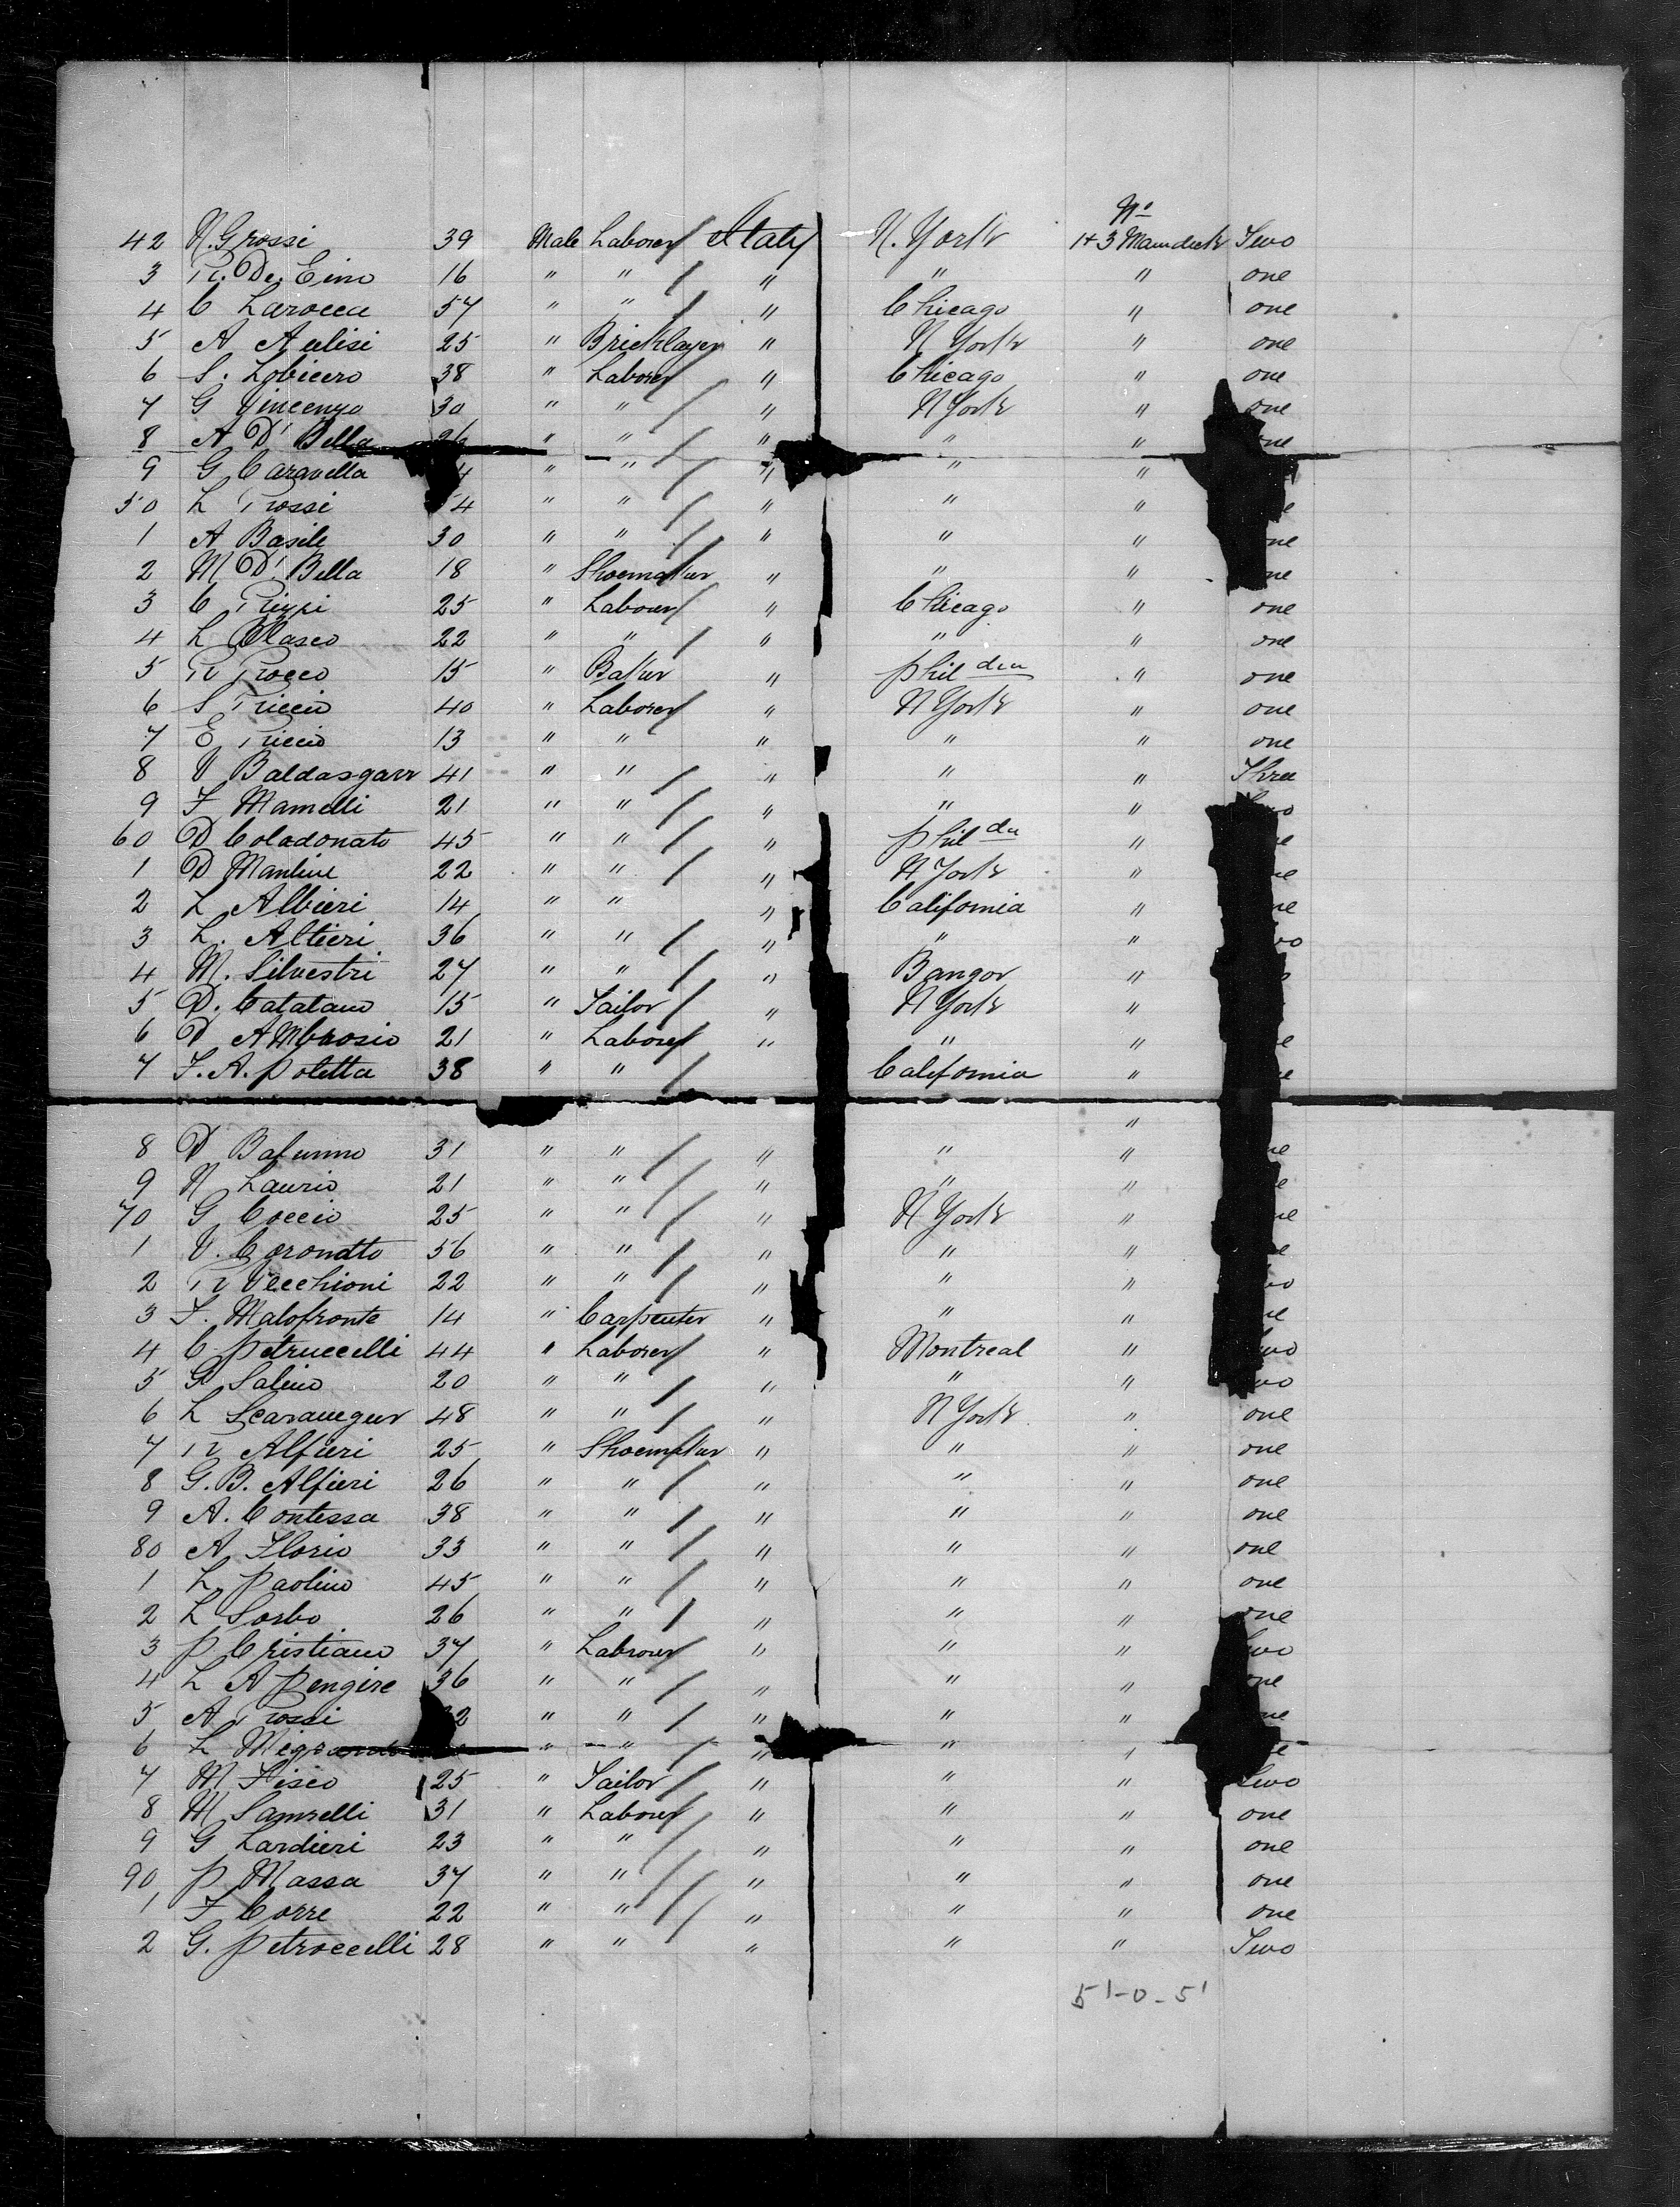 No
42 N. Grossi 39 Male Laborer Italy N. York 1+3 Maindeck Two
3 R. De Cino 16 " " " " " one
4 C Larocca 57 " " " Chicago " one
5 A Aulisi 25 " Bricklayer " N York " one
6 S. Lobicero 38 " Laborer " Chicago " one
7 G Vincenzo 30 " " " N York " one
8 A D' Bella 26 " " " " " one
9 G Caravella 4 " " " " "
50 L Rossi 54 " " " " "
1 A Basile 30 " " " " " one
2 M D' Bella 18 " Shoemaker " " " one
3 C 25 " Laborer " Chicago " one
4 L Blasco 22 " " " " " one
5 R Rocco 15 " Baker " phil dia " one
6 S Riccio 40 " Laborer " N York " one
7 E Riccio 13 " " " " " one
8 V Baldasgarr 41 " " " " " Three
9 F Mamelli 21 " " " " "
60 D Coladonato 45 " " " phil da "
1 D Manline 22 " " " N York "
2 L Albieri 14 " " " California "
3 L. Altieri 36 " " " " "
4 M. Silvestri 27 " " " Bangor "
5 D. Catalano 15 " Tailor " N York "
6 D Ambrosio 21 " Laborer " " "
7 F. A. poletta 38 " " California "
"
8 D Bafunno 31 " " " " "
9 N Laurio 21 " " " " "
70 G Coccio 25 " " " N York "
1 V. Coronatto 56 " " " " "
2 R Vecchioni 22 " " " " "
3 F. Malofronte 14 " Carpenter " " "
4 C petruccelli 44 " Laborer " Montreal " Two
5 G Salino 20 " " " " "
6 L Scaramegur 48 " " " N York " one
7 R Alfieri 25 " Shoemaker " " " one
8 G. B. Alfieri 26 " " " " " one
9 A. Contessa 38 " " " " " one
80 A Florio 33 " " " " " one
1 L paolino 45 " " " " " one
2 L Sorbo 26 " " " " " one
3 p Cristiano 37 " Laborer " " " Two
4 L A pengire 36 " " " " " one
5 A Rossi 2 " " " " " one
6 L " " " " "
7 M Fisco 25 " Tailor " " " Two
8 M Samrelli 31 " Laborer " " " one
9 G Lardieri 23 " " " " " one
90 p Massa 37 " " " " " one
1 F Corre 22 " " " " " one
2 G. petroccelli 28 " " " " " Two
51-0-51